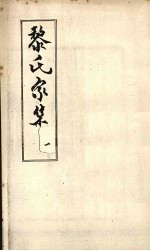 黎氏家集
一